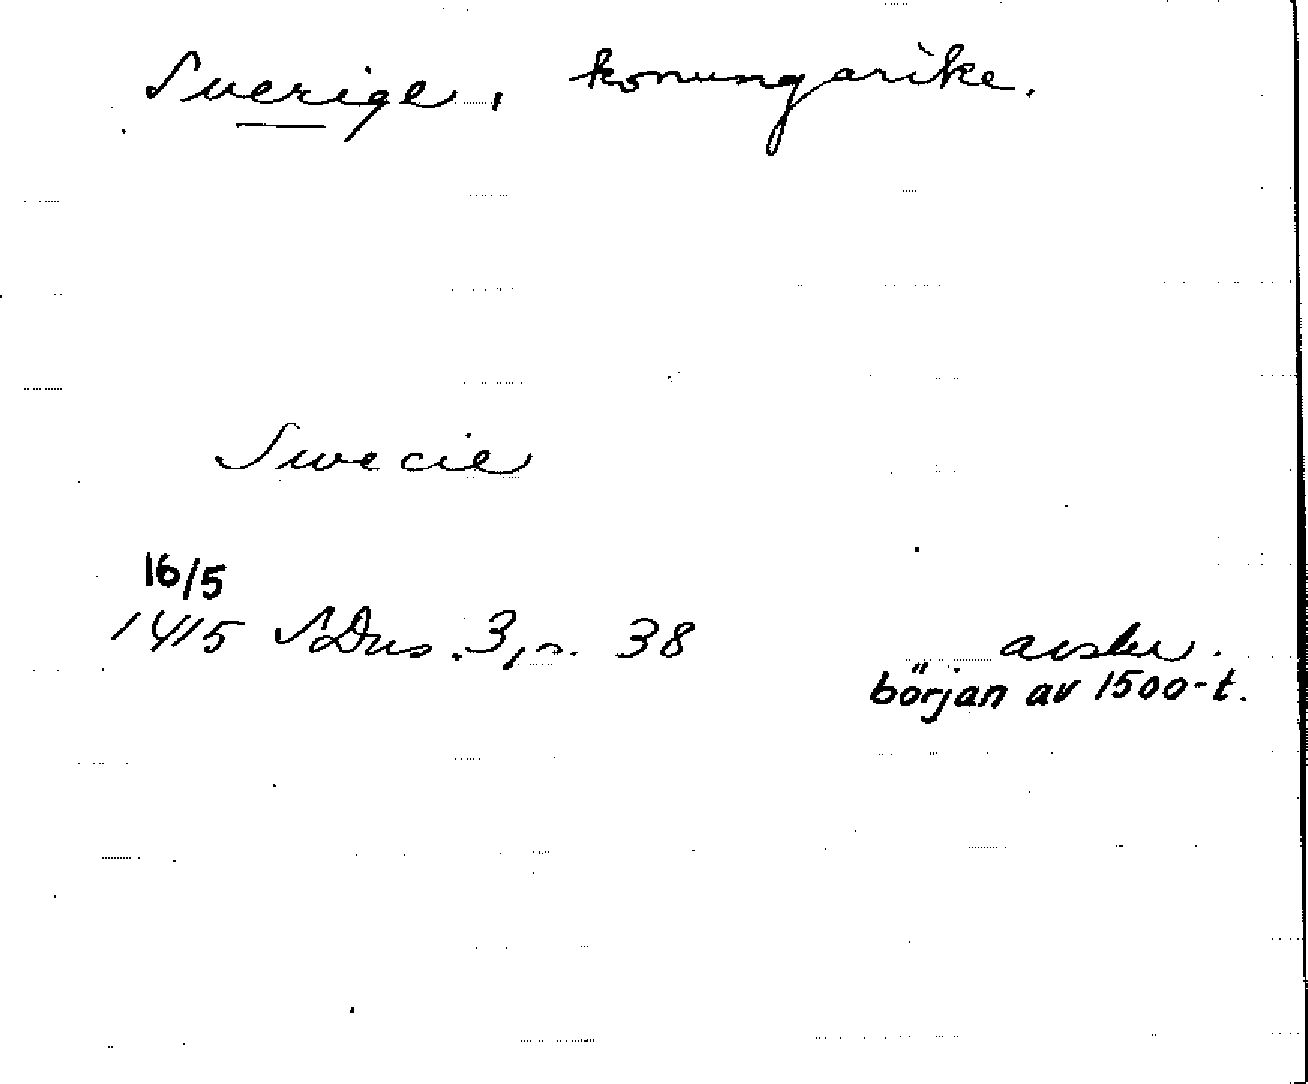 Sverige, konungarike.
Swecie
16/5
1415 SDns. 3, s. 38 avskr.
början av 1500-t.